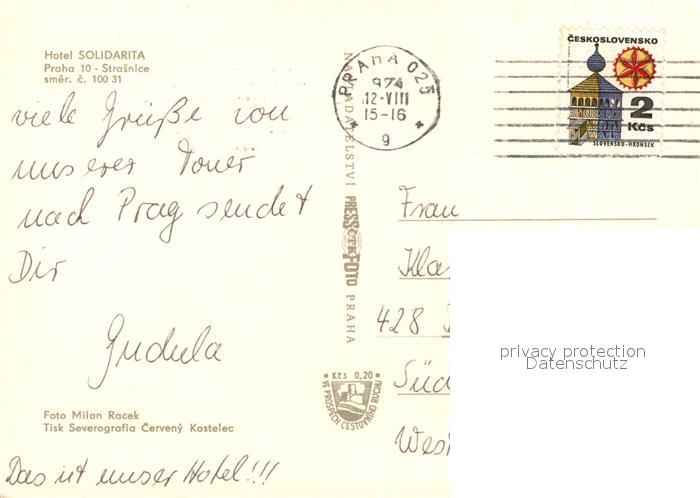 Hotel SOLIDARITA
Praha 10 - Strašnice
směr. č. 100 31
viele Grüße von
unserer Toner
nach Prag sendet
Dir
Gudula
Foto Milan Racek
Tisk Severografia Červený Kostelec
Das ist unser Hotel!!!
PRAHA 025
974
12-VIII
15-16
9
ČESKOSLOVENSKO
2
Kčs
SLOVENSKO-HRONSEK
PRESSFOTO PRAHA
ČTK
Kčs 0,20
VE PROSPĚCH CESTOVNÍHO RUCHU
Frau
428
Süd
privacy protection
Datenschutz